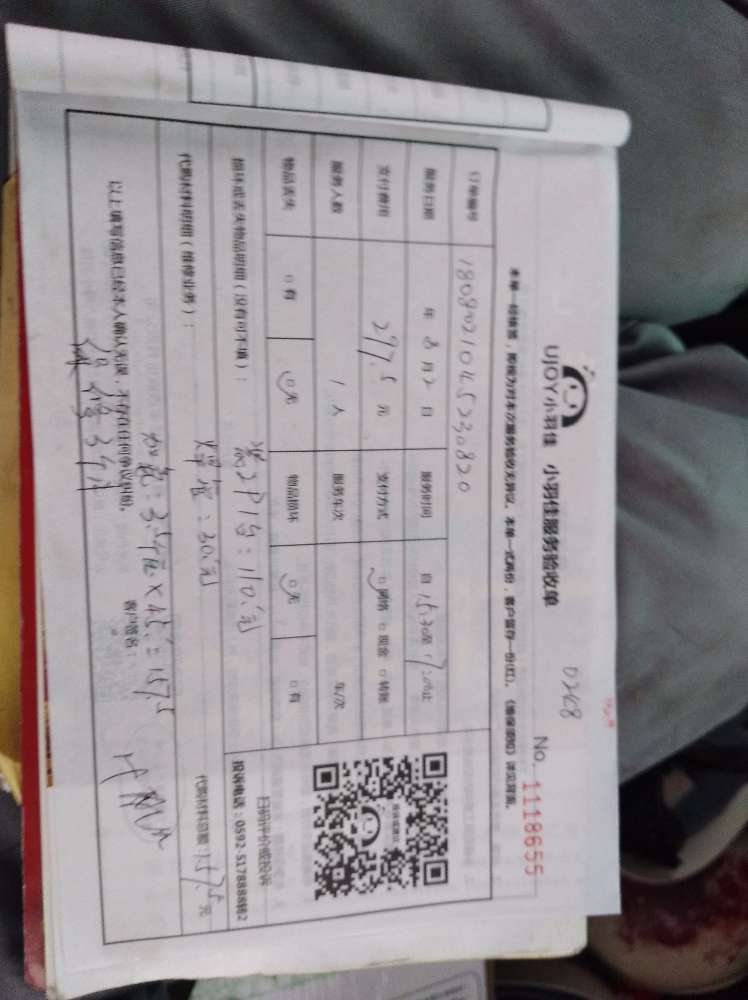 UJOY小羽佳 小羽佳服务验收单
0768
No. 1118655
本单一经签署，即视为对本次服务验收无异议。本单一式两份，客户留存一份(红)。《维保须知》详见背面。
订单编号 1808021045230820
服务日期 年 8 月 2 日 服务时间 自 15:30至17:00止
支付费用 297.5 元 支付方式 □网络 □现金 □转账
服务人数 1 人 服务车次 车/次
物品丢失 □有 □无 物品损坏 □无 □有
损坏或丢失物品明细（没有可不填）：
1台：110元
扫码评价或投诉
投诉电话：0592-5178888转2
代购材料明细（维修业务）：
：30元
代购材料总额：157.5元
加氟：3.5元×45=157.5
以上填写信息已经本人确认无误，不存在任何争议纠纷。
客户签名：
保修3个月